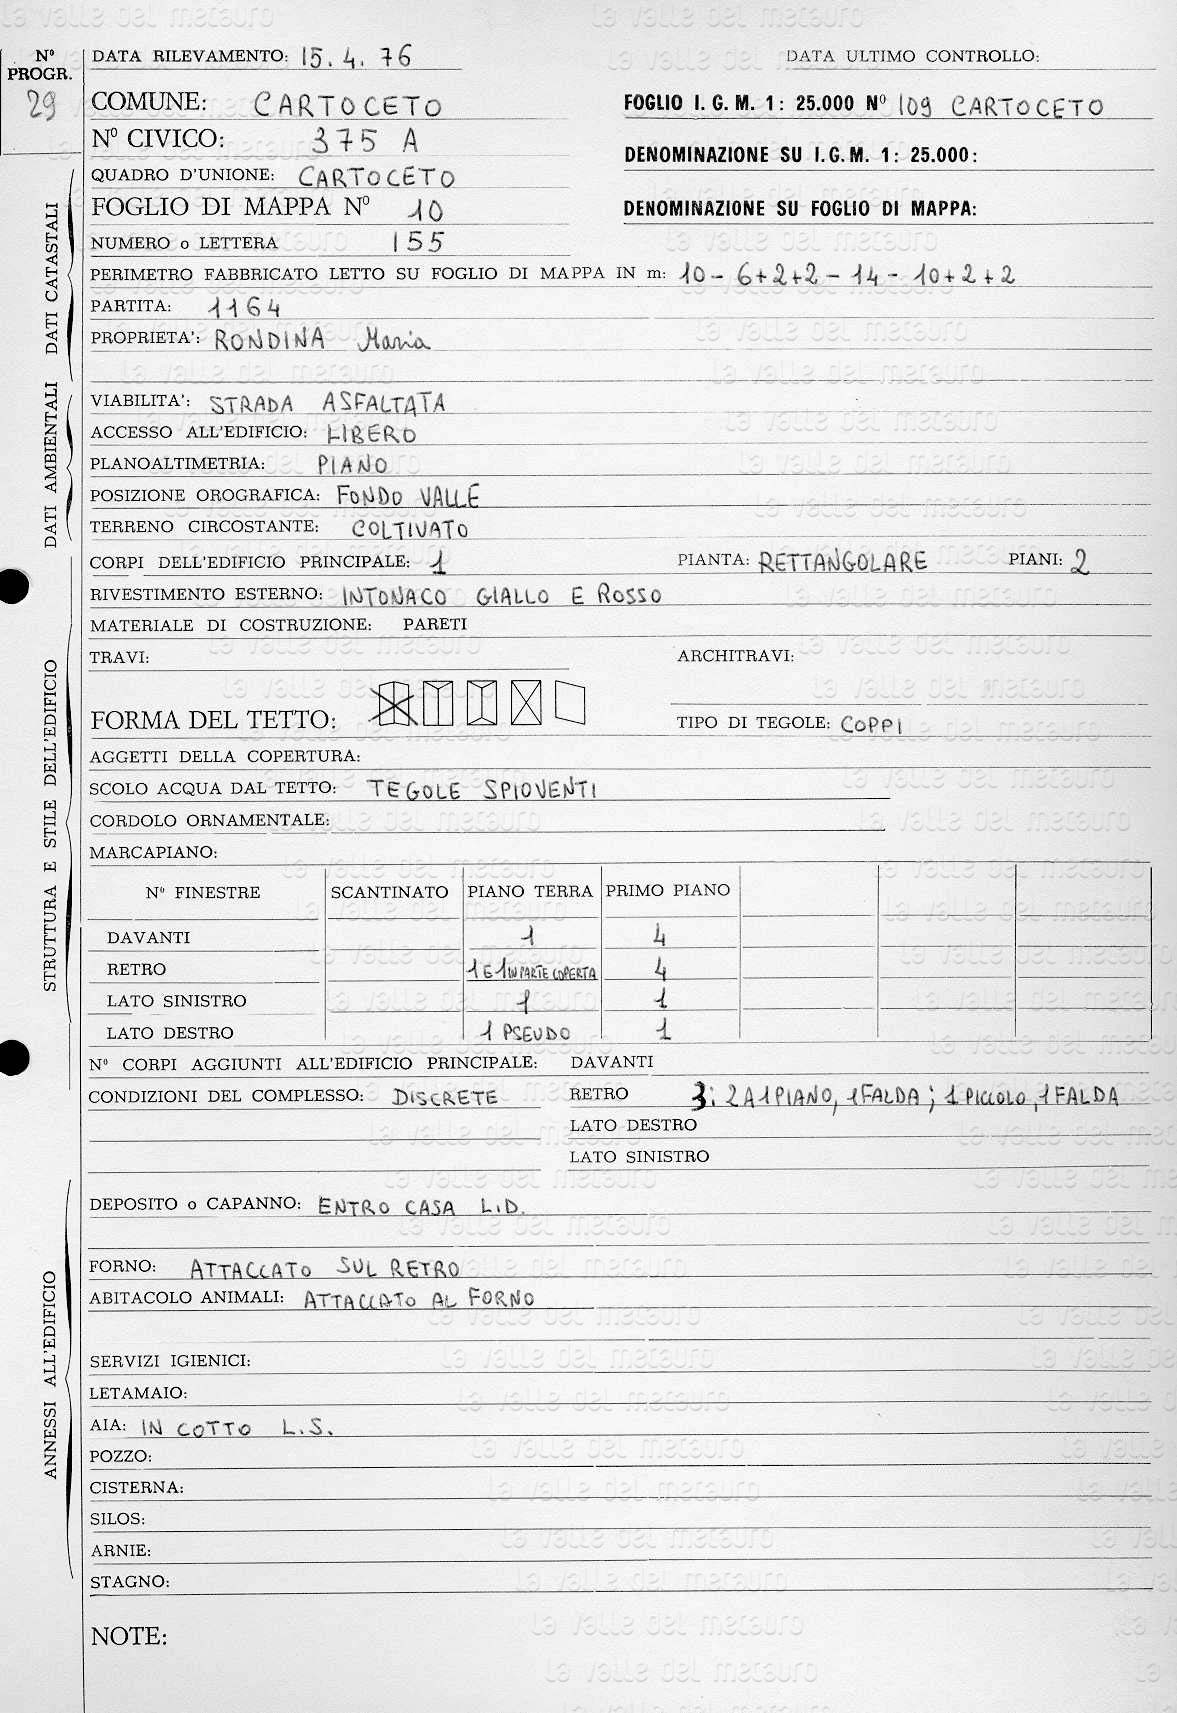 Nº PROGR. 29
DATA RILEVAMENTO: 15.4.76 DATA ULTIMO CONTROLLO:
COMUNE: CARTOCETO FOGLIO I.G.M. 1: 25.000 Nº 109 CARTOCETO
Nº CIVICO: 375 A DENOMINAZIONE SU I.G.M. 1: 25.000:
QUADRO D'UNIONE: CARTOCETO
FOGLIO DI MAPPA Nº 10 DENOMINAZIONE SU FOGLIO DI MAPPA:
NUMERO o LETTERA 155
PERIMETRO FABBRICATO LETTO SU FOGLIO DI MAPPA IN m: 10 - 6+2+2 - 14 - 10+2+2
PARTITA: 1164
PROPRIETA': RONDINA Maria
DATI CATASTALI
VIABILITA': STRADA ASFALTATA
ACCESSO ALL'EDIFICIO: LIBERO
PLANOALTIMETRIA: PIANO
POSIZIONE OROGRAFICA: FONDO VALLE
TERRENO CIRCOSTANTE: COLTIVATO
DATI AMBIENTALI
CORPI DELL'EDIFICIO PRINCIPALE: 1 PIANTA: RETTANGOLARE PIANI: 2
RIVESTIMENTO ESTERNO: INTONACO GIALLO E ROSSO
MATERIALE DI COSTRUZIONE: PARETI
TRAVI: ARCHITRAVI:
FORMA DEL TETTO: TIPO DI TEGOLE: COPPI
AGGETTI DELLA COPERTURA:
SCOLO ACQUA DAL TETTO: TEGOLE SPIOVENTI
CORDOLO ORNAMENTALE:
MARCAPIANO:
Nº FINESTRE SCANTINATO PIANO TERRA PRIMO PIANO
DAVANTI 1 4
RETRO 1 E 1 IN PARTE COPERTA 4
LATO SINISTRO 1 1
LATO DESTRO 1 PSEUDO 1
STRUTTURA E STILE DELL'EDIFICIO
Nº CORPI AGGIUNTI ALL'EDIFICIO PRINCIPALE: DAVANTI
CONDIZIONI DEL COMPLESSO: DISCRETE RETRO 3: 2 A 1 PIANO, 1 FALDA; 1 PICCOLO, 1 FALDA
LATO DESTRO
LATO SINISTRO
DEPOSITO o CAPANNO: ENTRO CASA L.D.
FORNO: ATTACCATO SUL RETRO
ABITACOLO ANIMALI: ATTACCATO AL FORNO
SERVIZI IGIENICI:
LETAMAIO:
AIA: IN COTTO L.S.
POZZO:
CISTERNA:
SILOS:
ARNIE:
STAGNO:
ANNESSI ALL'EDIFICIO
NOTE:
la valle del metauro